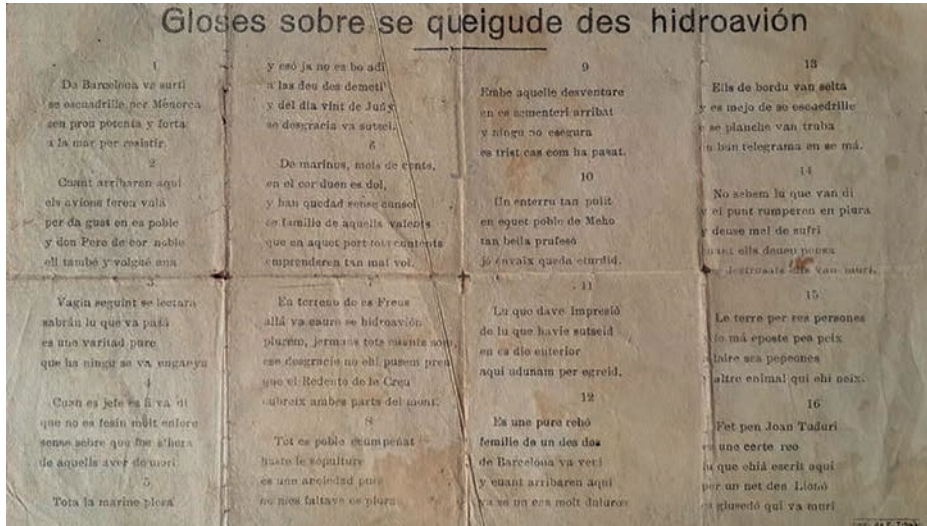 Gloses sobre se queigude des hidroavión
1
Da Barcelona va surti
se escuadrille per Menorca
sen prou potenta y forta
a la mar per resistir.
2
Cuant arribaren aqui
els avions feren volá
per da gust en es poble
y don Pere de cor noble
ell també y volgué aná
3
Vagin seguint se lectura
sabrán lu que va pasá
es una varitad pure
que ha ningú se va enganyá
4
Cuan es jefe es fi va di
que no es fesin molt enfore
sense sebre que fos s'hora
de aquells aver de mori
5
Tota la marine plora
y esó ja no es bo adi
a las deu des demeti
y del dia vint de Juñy
se desgracia va sutsei.
6
De marinus, mols de cents,
en el cor duen es dol,
y han quedad sense consol
se familie de aquells valents
que en aquet port tots contents
emprenderen tan mal vol.
En terreno de es Freus
allá va caure se hidroavión
plurem, jermans tots cuants som,
ese desgracie no ehi pusem preu
que el Redento de le Creu
cubreix ambes parts del mont.
8
Tot es poble ecumpeñat
haste le sepulture
es une ansiedad pure
no mes faltave es plora
9
Embe aquelle desventure
en es sementeri arribat
y ningu no esegura
es trist cas com ha pasat.
10
Un enterru tan pulit
en equet poble de Meho
tan bella prufesó
jó envaix queda eturdid.
11
Lu que dave impresió
de lu que havie sutseid
en es dio enterior
aqui udunam per egreid.
12
Es une pure rehó
femilie de un des dos
de Barcelona va veni
y cuant arribaren aqui
va se un cas molt duluros
13
Ells de bordu van selta
y es mejo de se escuedrille
e se planche van truba
un bun telegrama en se má.
14
No sebem lu que van di
y el punt rumperen en plura
y deuse mel de sufri
cuant ells deuen pensa
destrusats ells van muri.
15
Le terre per res persones
le má eposte pes peix
s'aire ses pepeones
y altre enimal qui ehi neix.
16
Fet pen Joan Tuduri
es une certe reo
lu que ehiá escrit aqui
per un net den Llonó
glusedó qui va muri